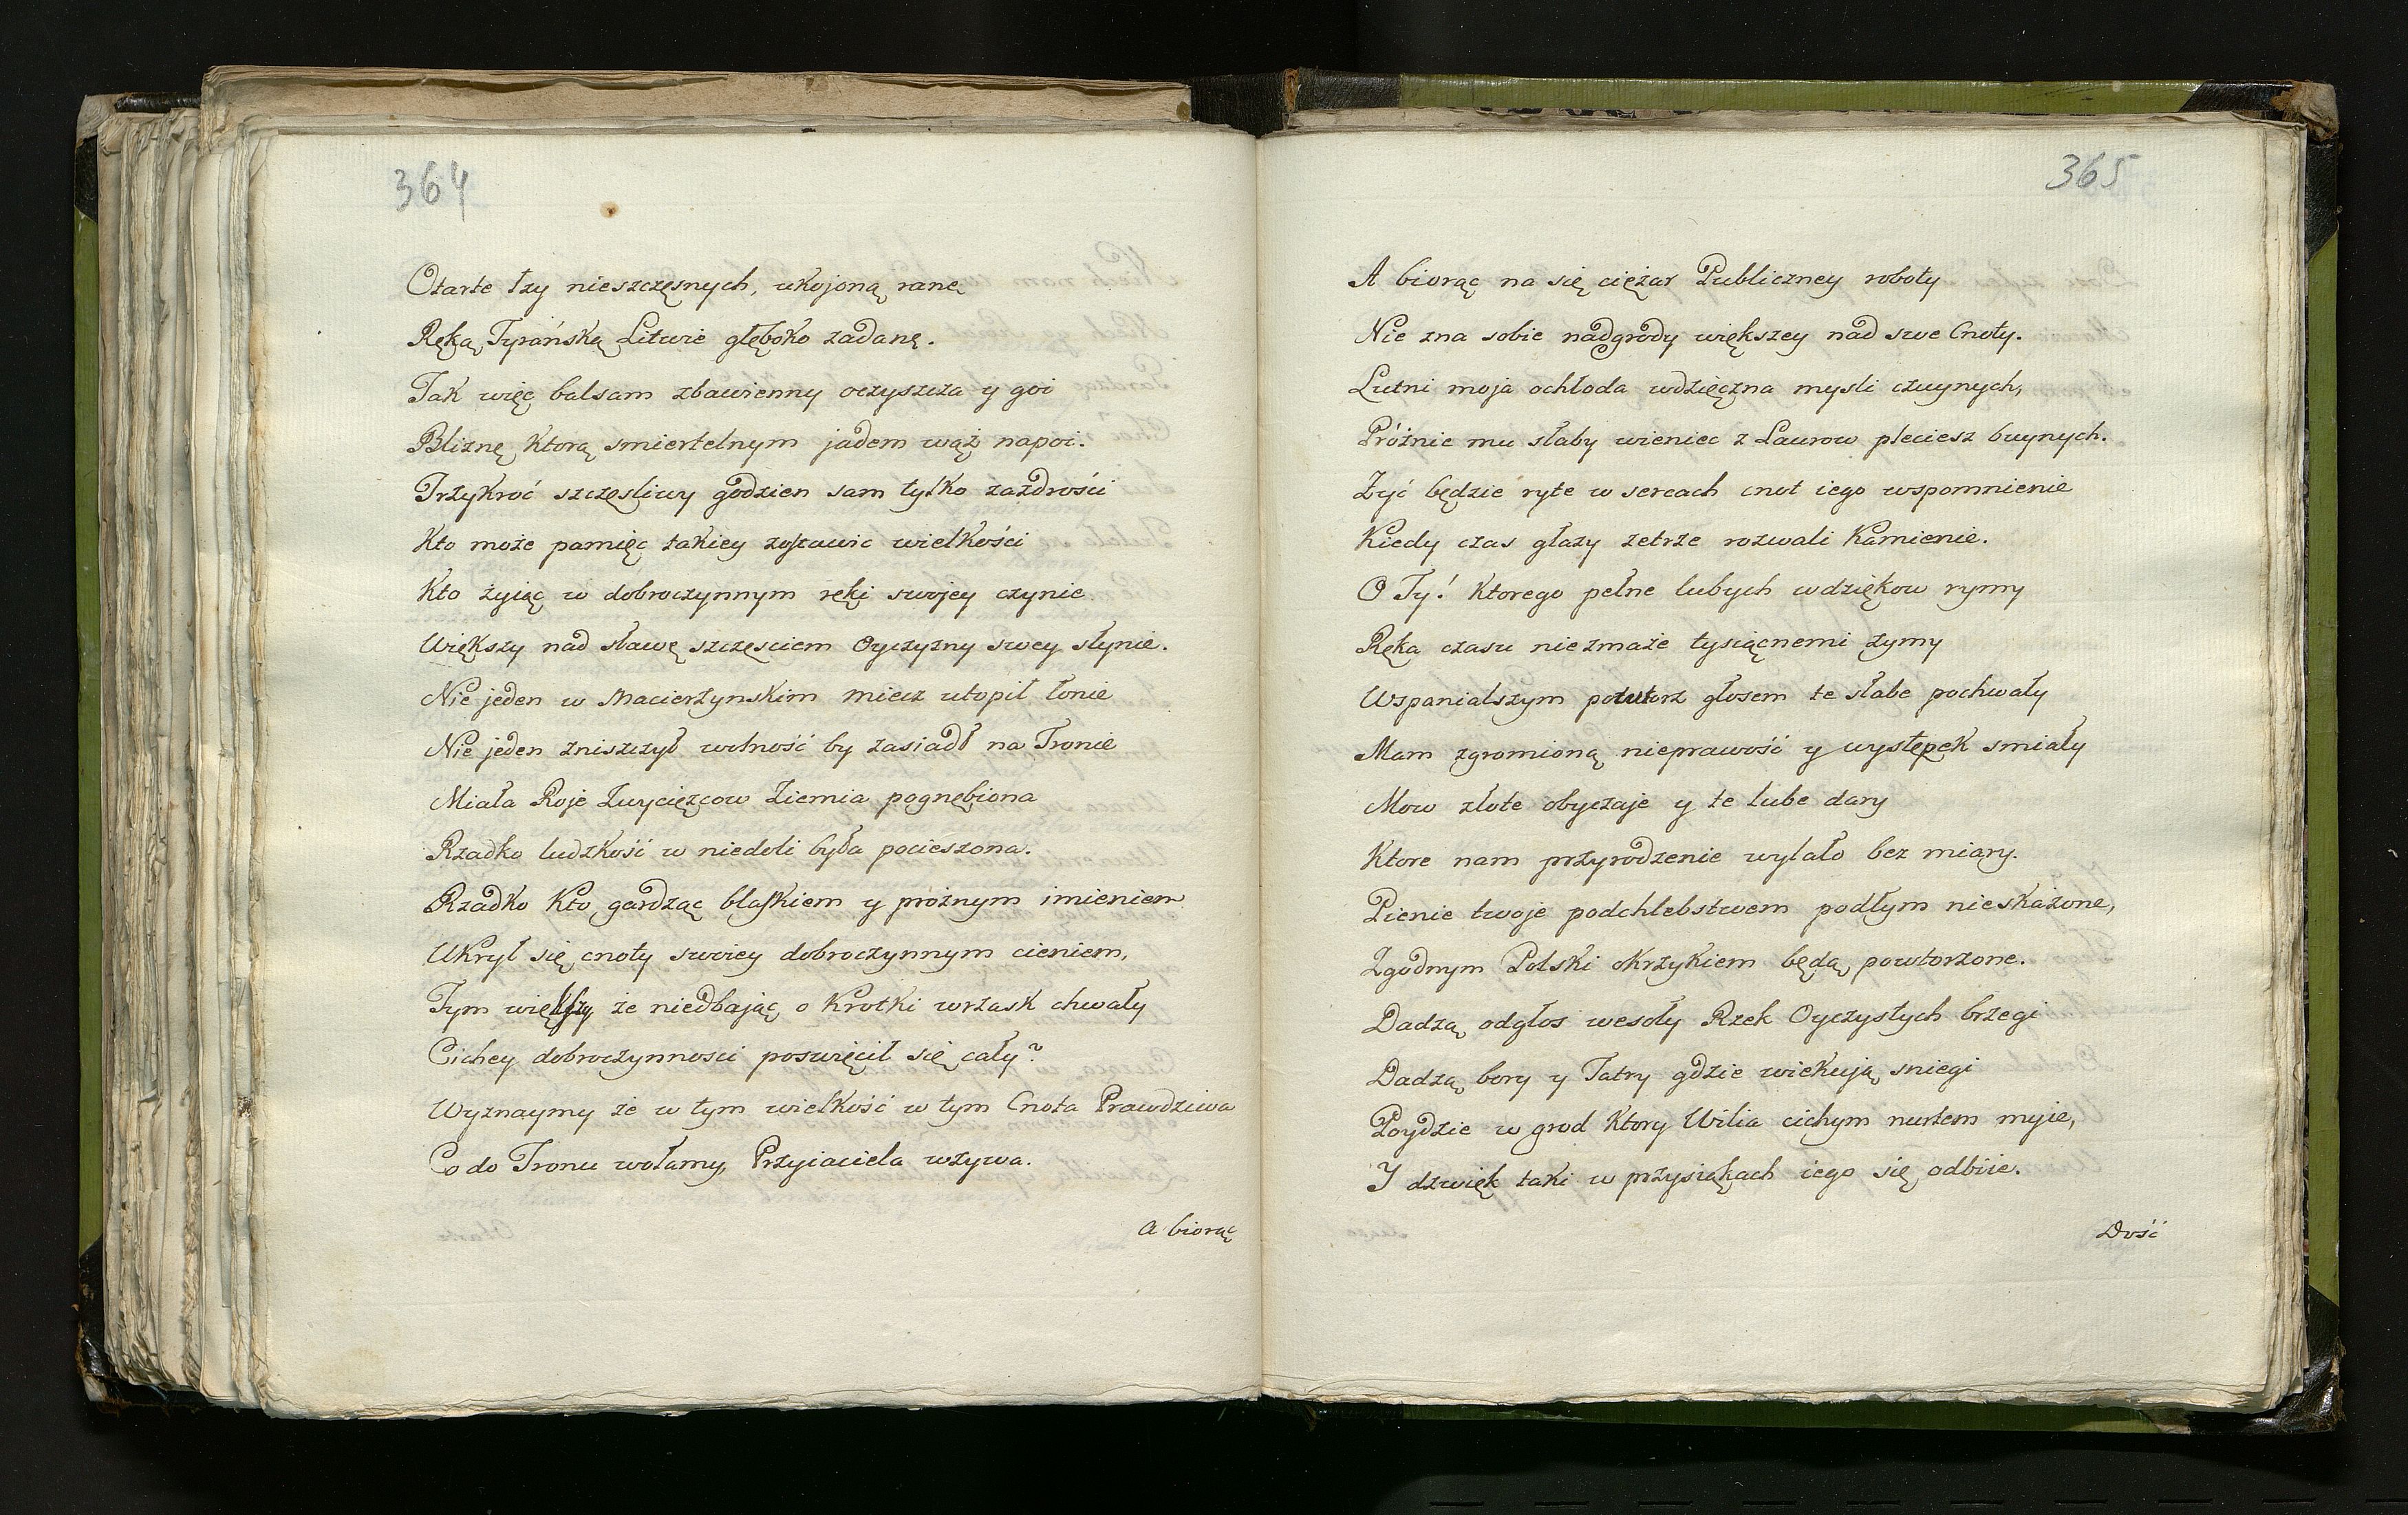 364
Otarte łzy nieszczęsnych, ukojoną ranę
Ręką Tyrańską Litwie głęboko zadanę.
Tak więc balsam zbawienny oczyszcza y goi
Bliznę ktorą smiertelnym jadem wąż napoi.
Trzykroć szczęsliwy godzien sam tylko zazdrości
Kto może pamięc takiey zostawic wielkości
Kto żyiąc w dobroczynnym ręki swojey czynie
Większy nad sławę szczęsciem Oyczyzny swey słynie.
Nie jeden w Macierzynskim miecz utopił łonie
Nie jeden zniszczył wolność by zasiadł na Tronie
Miała Roje Zwycięzcow Ziemia pognębiona
Rzadko ludzkość w niedoli była pocieszona.
Rzadko kto gardząc blaskiem y próżnym imieniem
Ukrył się cnoty swoiey dobroczynnym cieniem,
Tym większy że niedbając o krotki wrzask chwały
Cichey dobroczynnosci poswięcił się cały?
Wyznaymy że w tym wielkość w tym Cnota Prawdziwa
Co do Tronu wołamy, Przyiaciela wzywa.
a biorąc
365
A biorąc na się ciężar Publiczney roboty
Nie zna sobie nadgrody większey nad swe Cnoty.
Lutni moja ochłoda wdzięczna mysli czuynych,
Próżnie mu słaby wieniec z Laurow pleciesz buynych.
Żyć będzie ryte w sercach cnot iego wspomnienie
Kiedy czas głazy zetrze rozwali kamienie.
O Ty! ktorego pełne lubych wdziękow rymy
Ręka czasu niezmaże tysiącnemi zymy
Wspanialszym powtorz głosem te słabe pochwały
Mam zgromioną nieprawość y występek smiały
Mow złote obyczaje y te lube dary
Ktore nam przyrodzenie wylało bez miary.
Pienie twoje podchlebstwem podłym nieskażone,
Zgodnym Polski okrzykiem będą powtorzone.
Dadzą odgłos wesoły Rzek Oyczystych brzegi
Dadzą bory y Tatry gdzie wiekują sniegi
Poydzie w grod ktory Wilia cichym nurtem myie,
I dzwięk taki w przysiękach iego się odbiie.
Dość